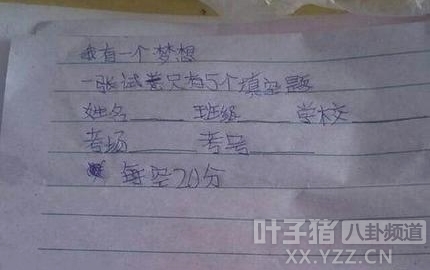 我有一个梦想
一张试卷只有5个填空题
姓名____ 班级____ 学校____
考场____ 考号____
每空20分
叶子猪 八卦频道
XX.YZZ.CN